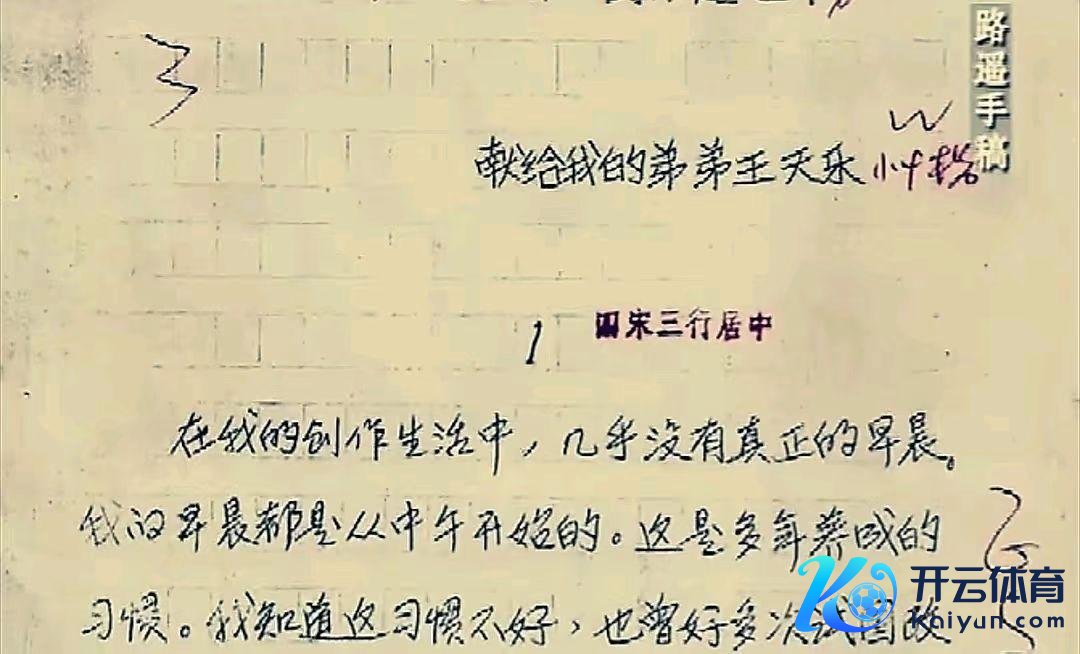 路遥手稿
献给我的弟弟王天乐
1
四宋三行居中
在我的创作生活中，几乎没有真正的早晨。
我的早晨都是从中午开始的。这是多年养成的
习惯。我知道这习惯不好，也曾好多次试图改
开云体育
Kaiyun.com